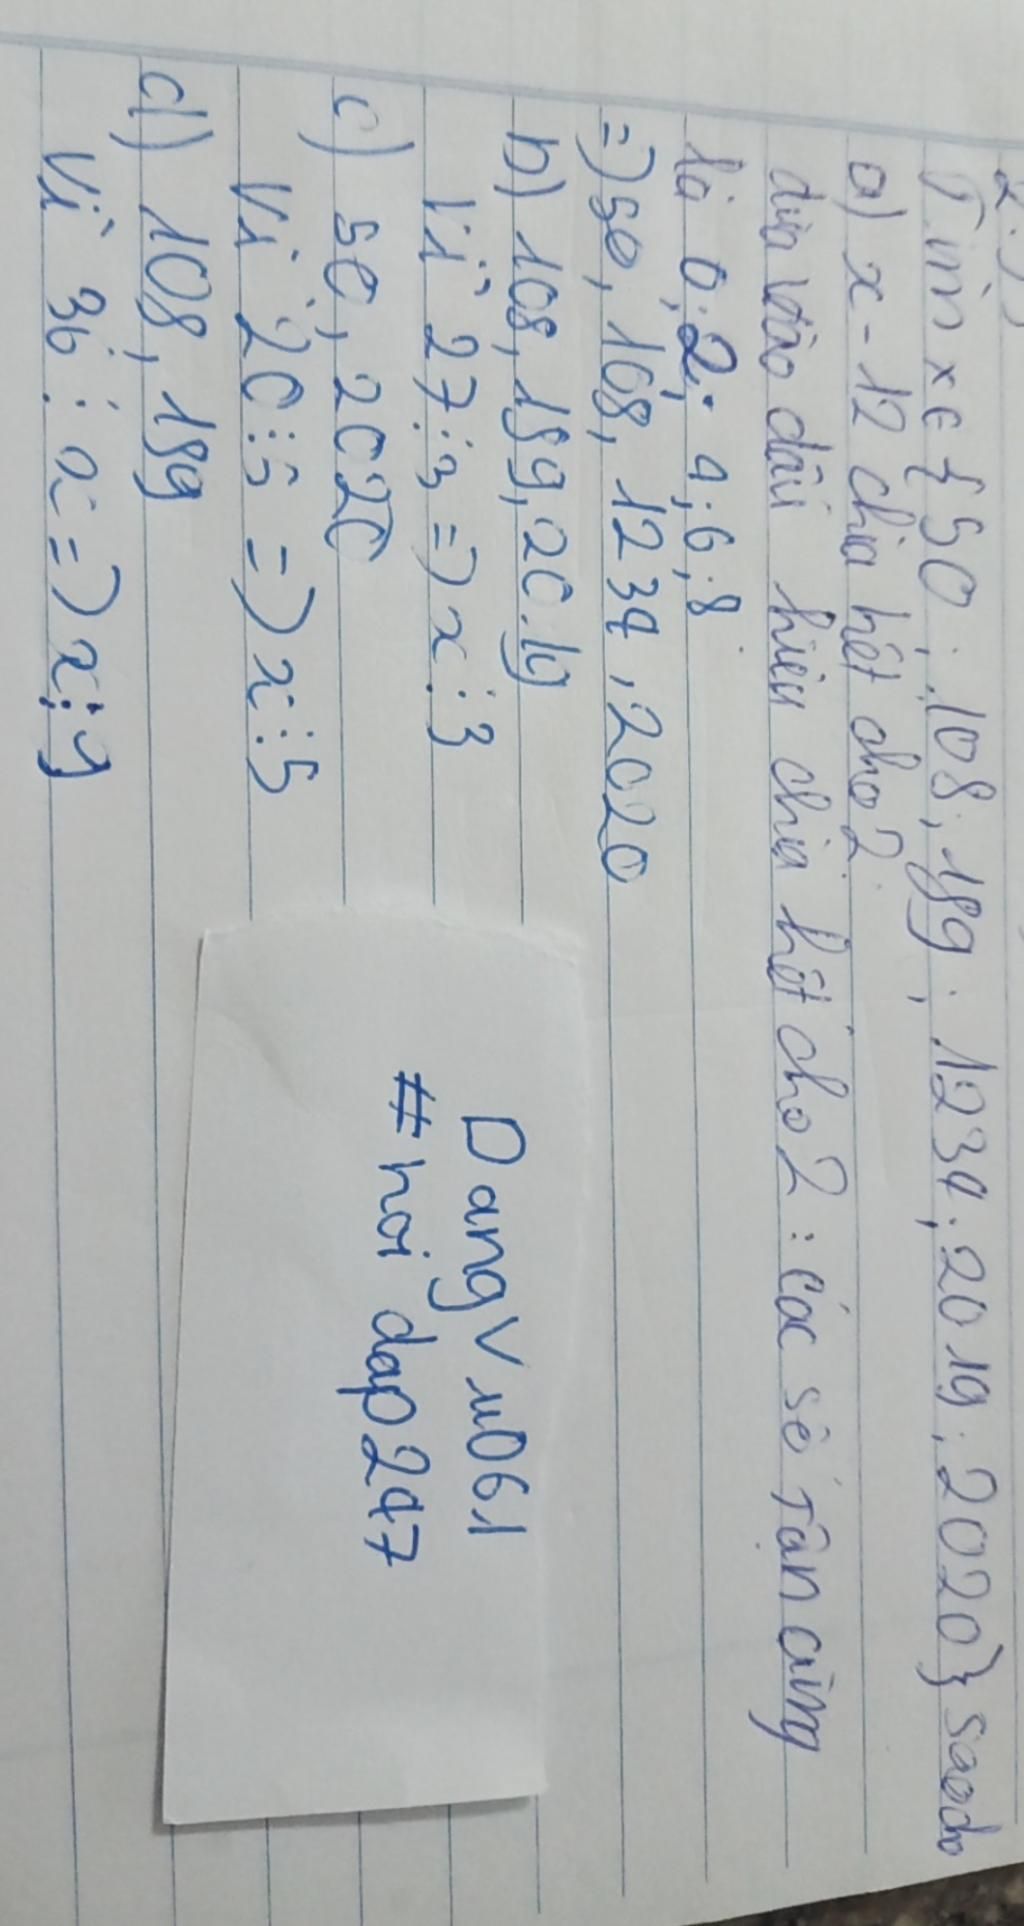 2.
Tìm x ∈ {50; 108; 189; 1234; 2019; 2020} sao cho
a) x - 12 chia hết cho 2
dựa vào dấu hiệu chia hết cho 2: các số tận cùng
là 0; 2; 4; 6; 8
=) 50, 108, 1234, 2020
b) 108, 189, 2019
Vì 27 ⋮ 3 =) x ⋮ 3
c) 50, 2020
Vì 20 ⋮ 5 =) x ⋮ 5
d) 108, 189
Vì 36 ⋮ x =) x ⋮ 9
DangVu061
#hoi dap247